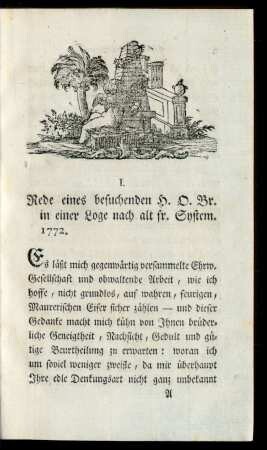 I.
Rede eines besuchenden H. O. Br.
in einer Loge nach alt fr. System.
1772.
Es läßt mich gegenwärtig versammelte Ehrw.
Gesellschaft und obwaltende Arbeit, wie ich
hoffe, nicht grundlos, auf wahren, feurigen,
Maurerischen Eifer sicher zählen — und dieser
Gedanke macht mich kühn von Ihnen brüder-
liche Geneigtheit, Nachsicht, Gedult und gü-
tige Beurtheilung zu erwarten: woran ich
um soviel weniger zweifle, da mir überhaupt
Ihre edle Denkungsart nicht ganz unbekannt
A